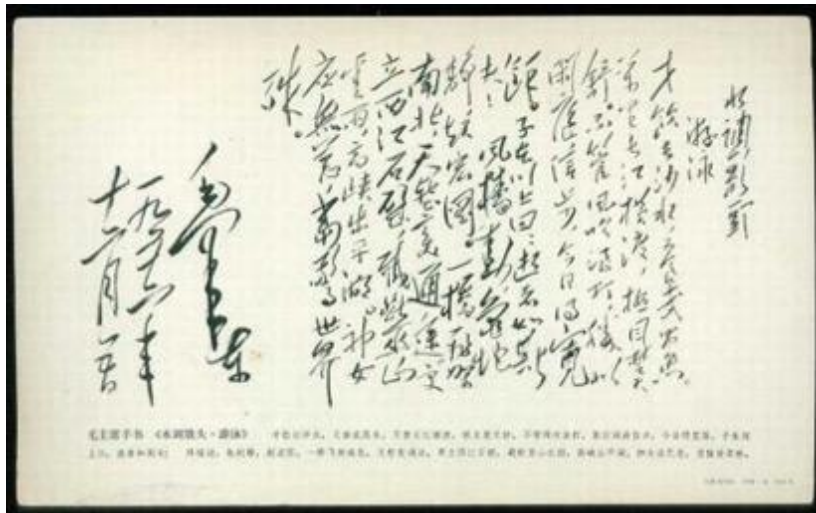 水调歌头
游泳
才饮长沙水，又食武昌鱼。
万里长江横渡，极目楚天
舒。不管风吹浪打，胜似
闲庭信步，今日得宽
馀。子在川上曰：逝者如斯
夫！风樯动，龟蛇
静，起宏图。一桥飞架
南北，天堑变通途。更
立西江石壁，截断巫山
云雨，高峡出平湖。神女
应无恙，当惊世界
殊。
毛泽东
一九五六年
十二月五日
毛主席手书 《水调歌头·游泳》 才饮长沙水，又食武昌鱼。万里长江横渡，极目楚天舒。不管风吹浪打，胜似闲庭信步，今日得宽馀。子在川
上曰：逝者如斯夫！ 风樯动，龟蛇静，起宏图。一桥飞架南北，天堑变通途。更立西江石壁，截断巫山云雨，高峡出平湖。神女应无恙，当惊世界殊。